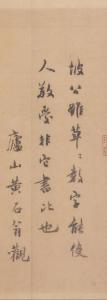 坡公雖草〻數字能使
人敬愛非它書比也
廬山黄石翁觀